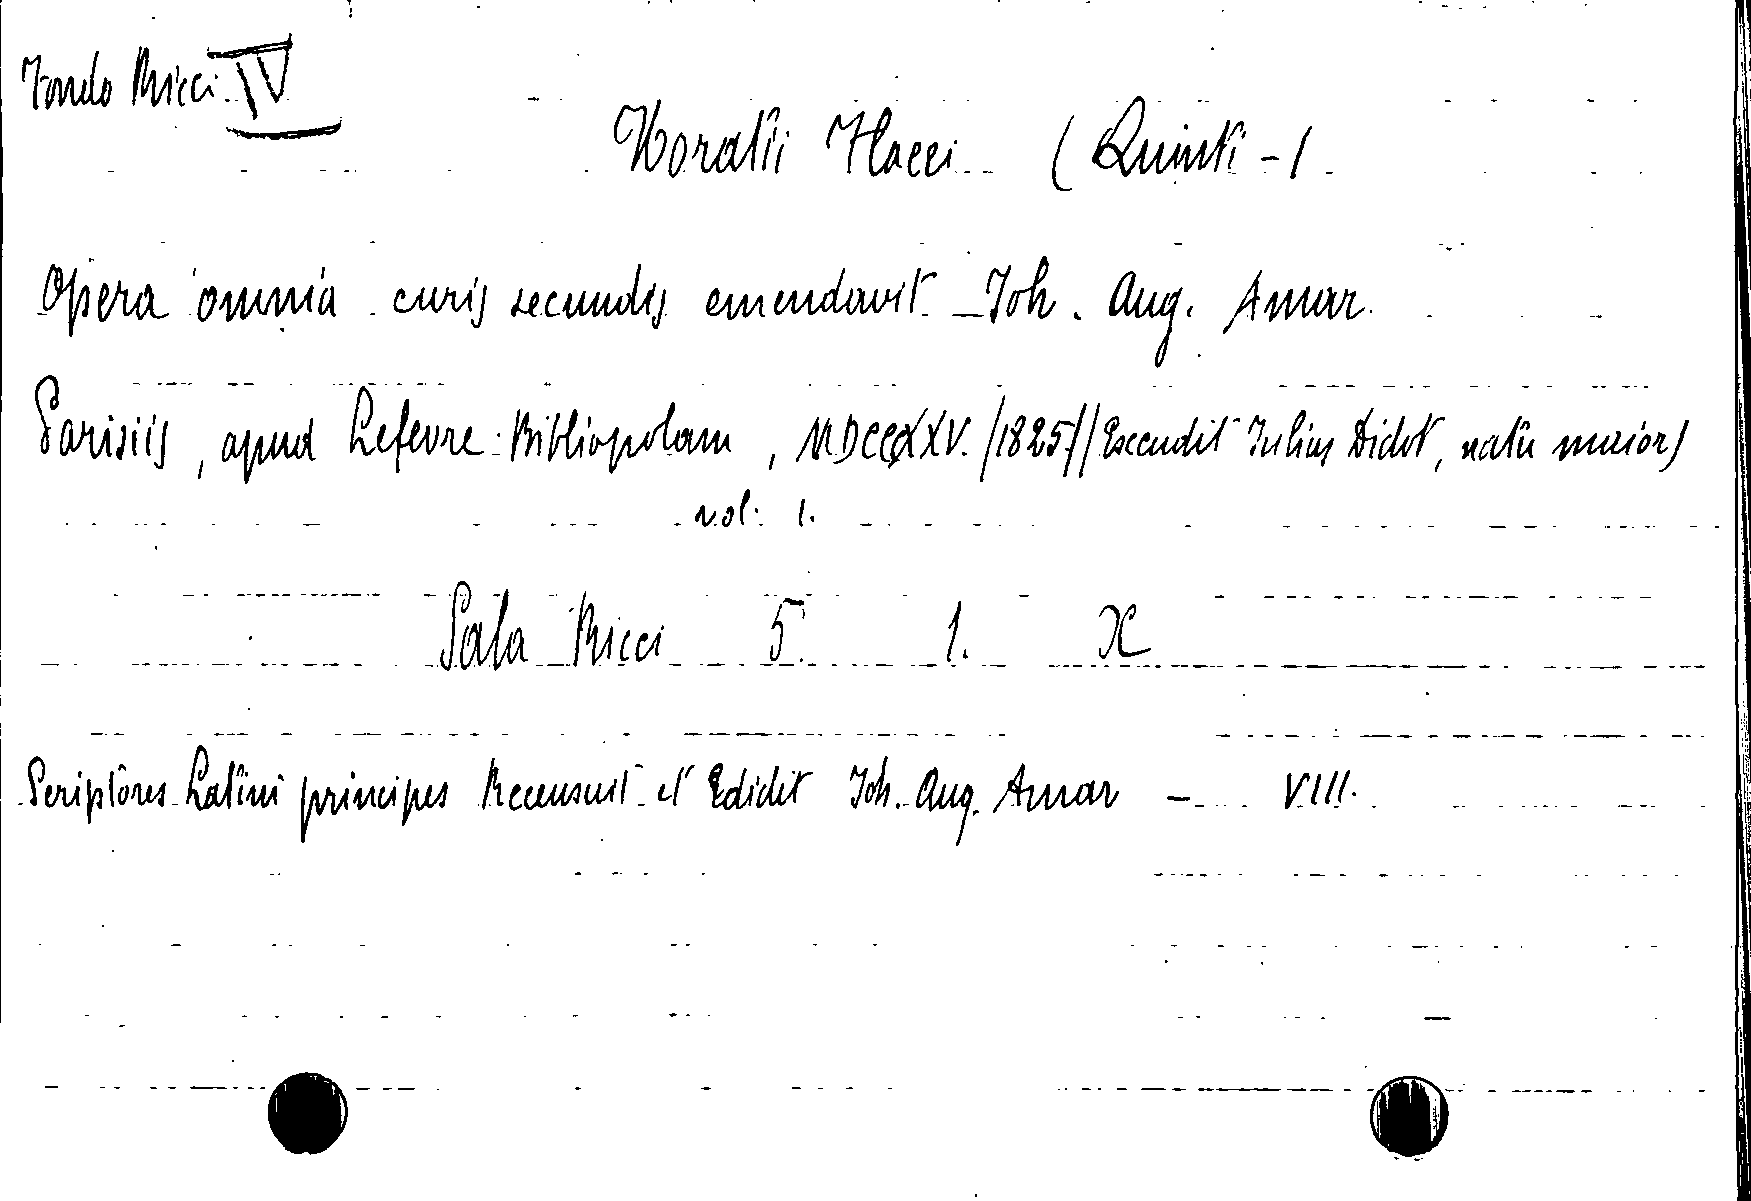 Fondo Ricci IV
Horatii Flacci (Quinti -)
Opera omnia curis secundis emendavit Joh. Aug. Amar
Parisiis, apud Lefevre Bibliopolam, MDCCCXXV. (1825) (Excudit Julius Didot, natu maior)
vol. 1.
Sala Ricci 5. 1. X
Scriptores Latini principes Recensuit et Edidit Joh. Aug. Amar - VIII.